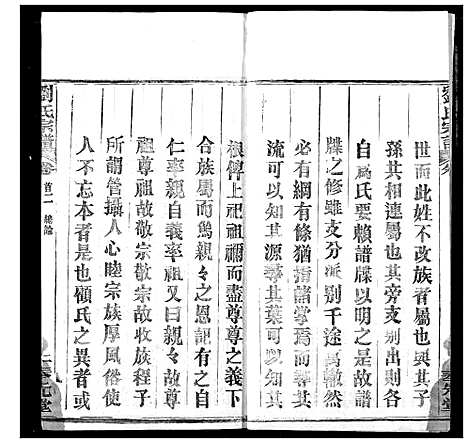 世而此姓不改族者屬也與其子
孫其相連屬也其旁支別出則各
自爲氏要賴譜牒以明之是故譜
牒之修雖支分派别千途萬轍然
必有綱有條猶指諸掌焉而尋其
流可以知其源尋其葉可以知其
根俾上祀祖禰而盡尊尊之義下
合族屬而篤親々之恩記有之自
仁率親自義率祖又曰親々故尊
祖尊祖故敬宗敬宗故收族程子
所謂管攝人心睦宗族厚風俗使
人不忘本者是也顧氏之異者或
劉氏宗譜 卷首二 總論